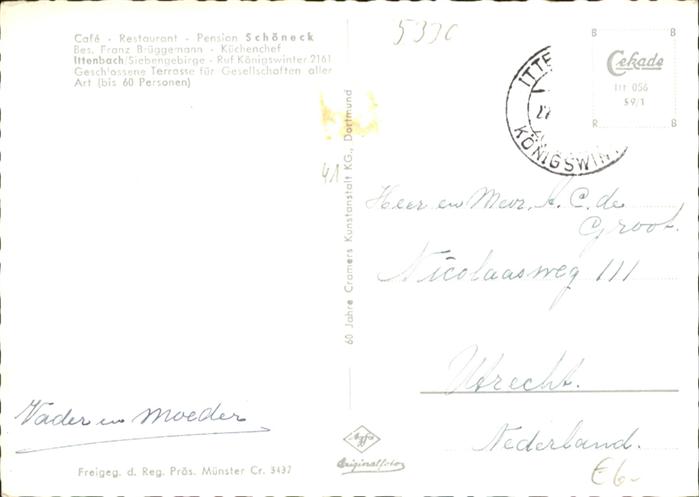 Café - Restaurant - Pension Schöneck
Bes. Franz Brüggemann - Küchenchef
Ittenbach/Siebengebirge - Ruf Königswinter 2161
Geschlossene Terrasse für Gesellschaften aller
Art (bis 60 Personen)
5330
B B
Cekade
Itt 056
59/1
R B
ITTE
KÖNIGSWIN
41
60 Jahre Cramers Kunstanstalt KG., Dortmund
Heer en Mevr. A. C. de
Groot.
Nicolaasweg 111
Utrecht.
Nederland.
Vader en Moeder
Agfa
Originalfoto
Freigeg. d. Reg. Präs. Münster Cr. 3437
€6-